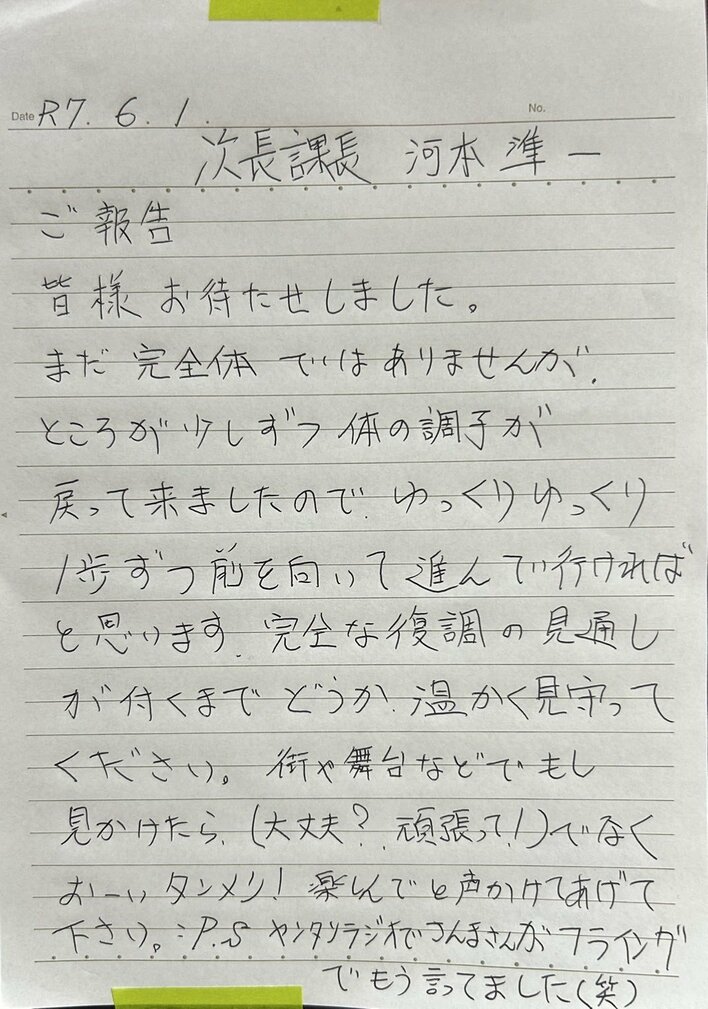 Date R7.6.1. No.
次長課長 河本準一
ご報告
皆様お待たせしました。
まだ完全体ではありませんが、
ところが少しずつ体の調子が
戻って来ましたので、ゆっくりゆっくり
1歩ずつ前を向いて進んで行ければ
と思います。完全な復調の見通し
が付くまでどうか、温かく見守って
ください。街や舞台などでもし
見かけたら、(大丈夫?、頑張って!)でなく
おーいタンメン!楽しんでと声かけてあげて
下さい。:P.S ヤンタンラジオでさんまさんがフライング
でもう言ってました(笑)